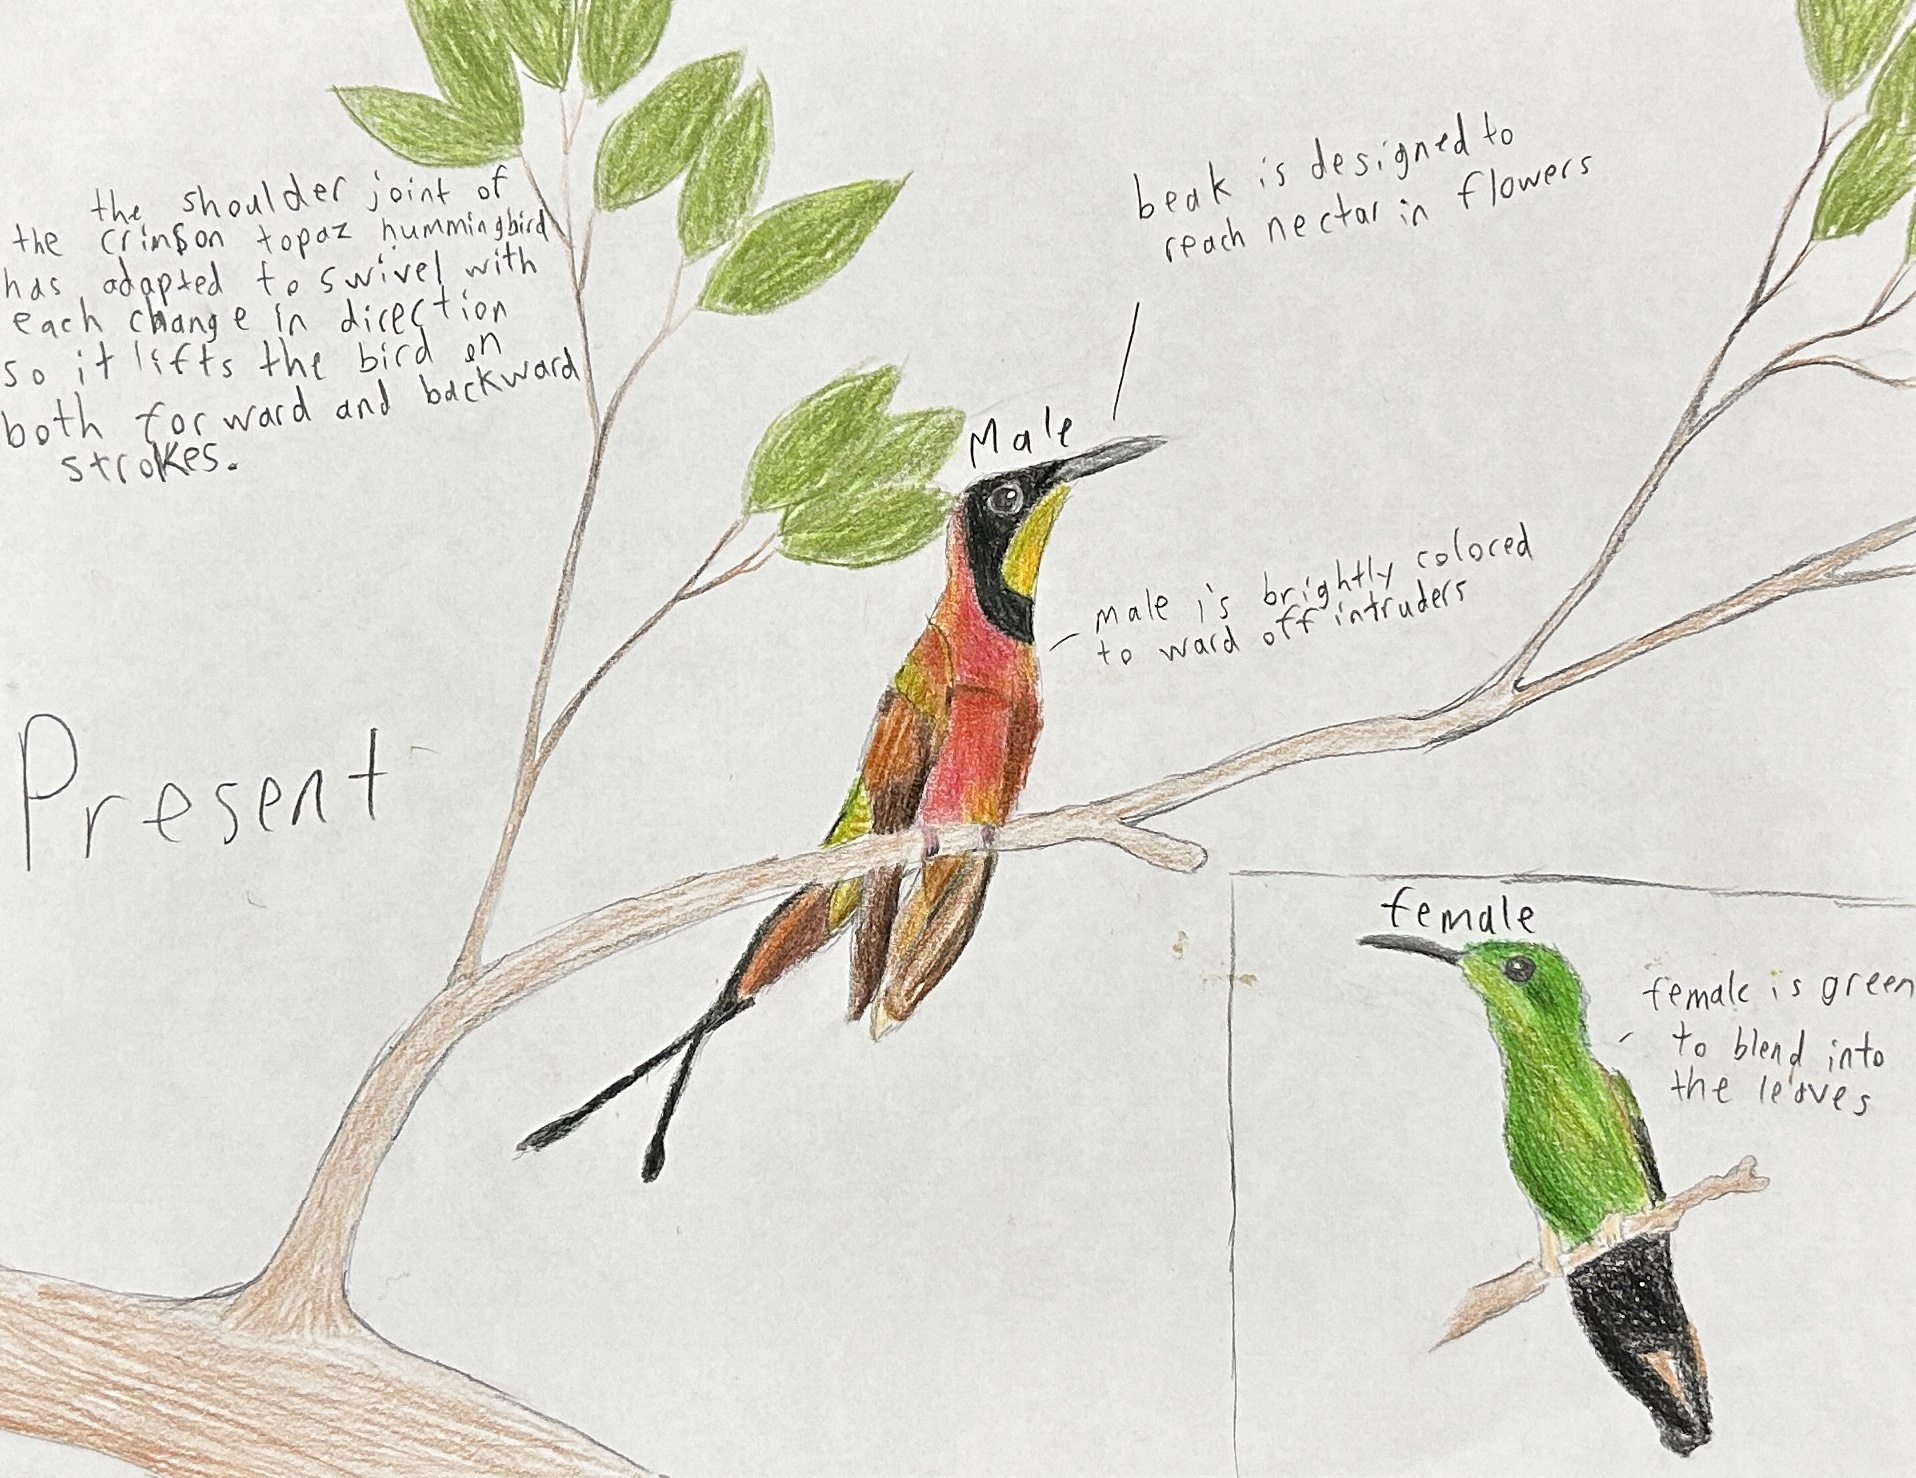 the shoulder joint of
the crimson topaz hummingbird
has adapted to swivel with
each change in direction
so it lifts the bird on
both forward and backward
strokes.
beak is designed to
reach nectar in flowers
Male
male is brightly colored
to ward off intruders
Present
female
female is green
to blend into
the leaves